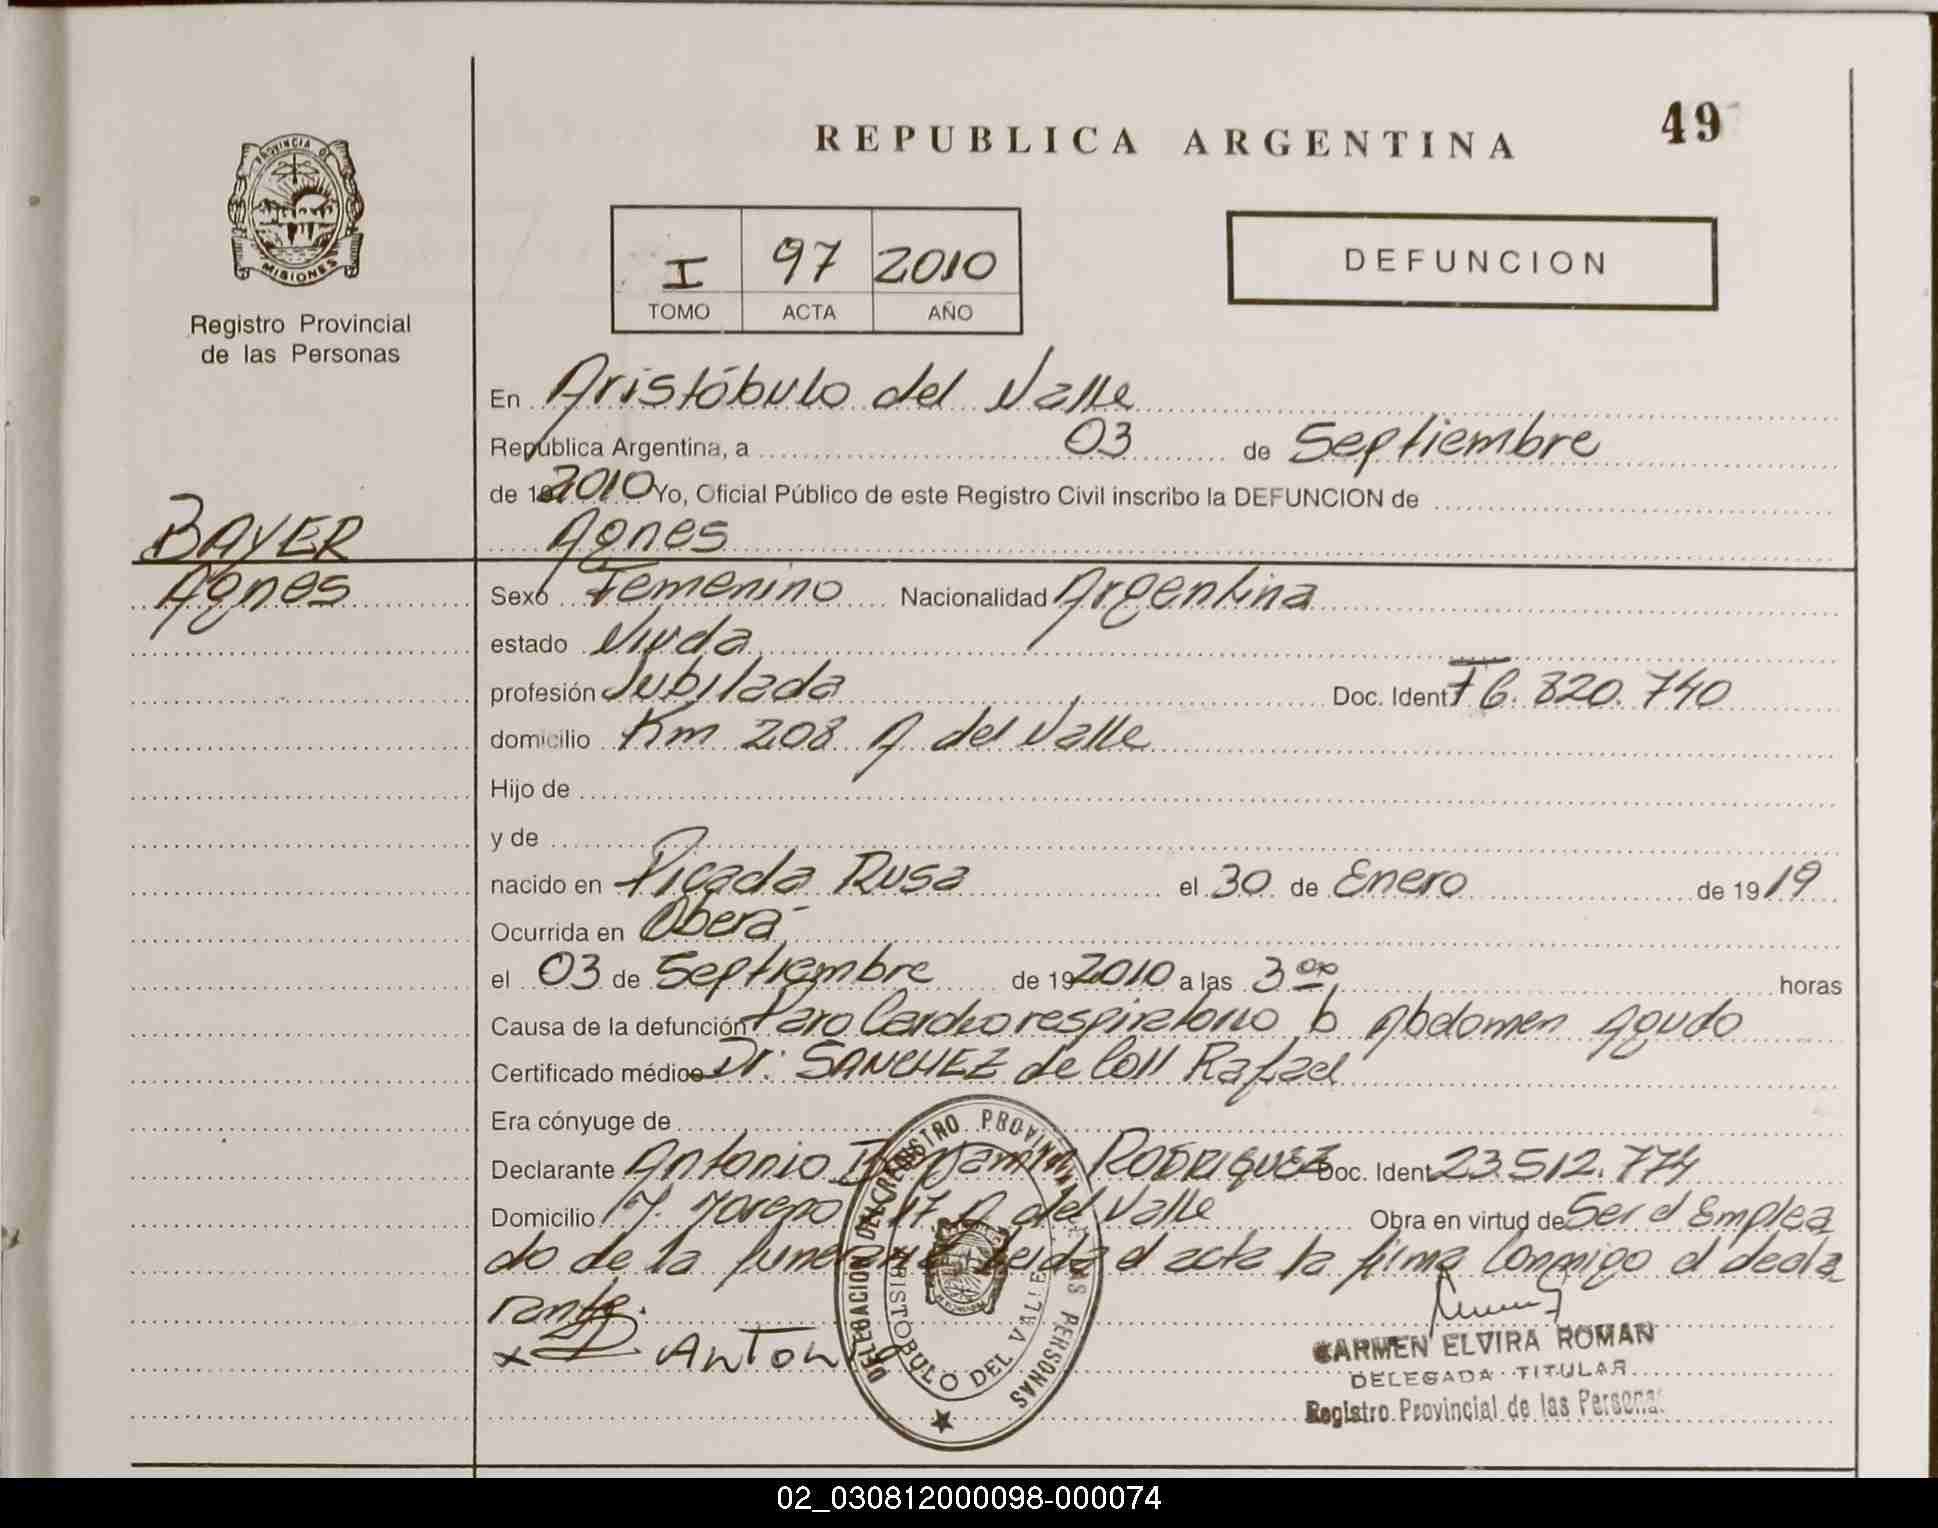 REPUBLICA ARGENTINA
49
PROVINCIA DE
MISIONES
Registro Provincial
de las Personas
I 97 2010
TOMO ACTA AÑO
DEFUNCION
En Aristóbulo del Valle
República Argentina, a 03 de Septiembre
de 19 2010 Yo, Oficial Público de este Registro Civil inscribo la DEFUNCION de
BAYER
Agnes
Agnes
Sexo Femenino Nacionalidad Argentina
estado Viuda
profesión Jubilada Doc. Ident. F 6.820.740
domicilio Km 208 A del Valle
Hijo de
y de
nacido en Picada Rusa el 30 de Enero de 1919
Ocurrida en Oberá
el 03 de Septiembre de 19 2010 a las 3 00 horas
Causa de la defunción Paro Cardiorespiratorio b Abdomen Agudo
Certificado médico Dr: SANCHEZ de Coll Rafael
Era cónyuge de
Declarante Antonio Benjamin RODRIGUEZ Doc. Ident. 23.512.774
Domicilio M. Moreno 17 A del Valle Obra en virtud de Ser el Emplea
do de la funeraria Leida el acta la firma Conmigo el decla
rante.
x ANTON
CARMEN ELVIRA ROMAN
DELEGADA TITULAR
Registro Provincial de las Personas
DELEGACION DEL REGISTRO PROVINCIAL DE LAS PERSONAS
ARISTOBULO DEL VALLE
02_030812000098-000074